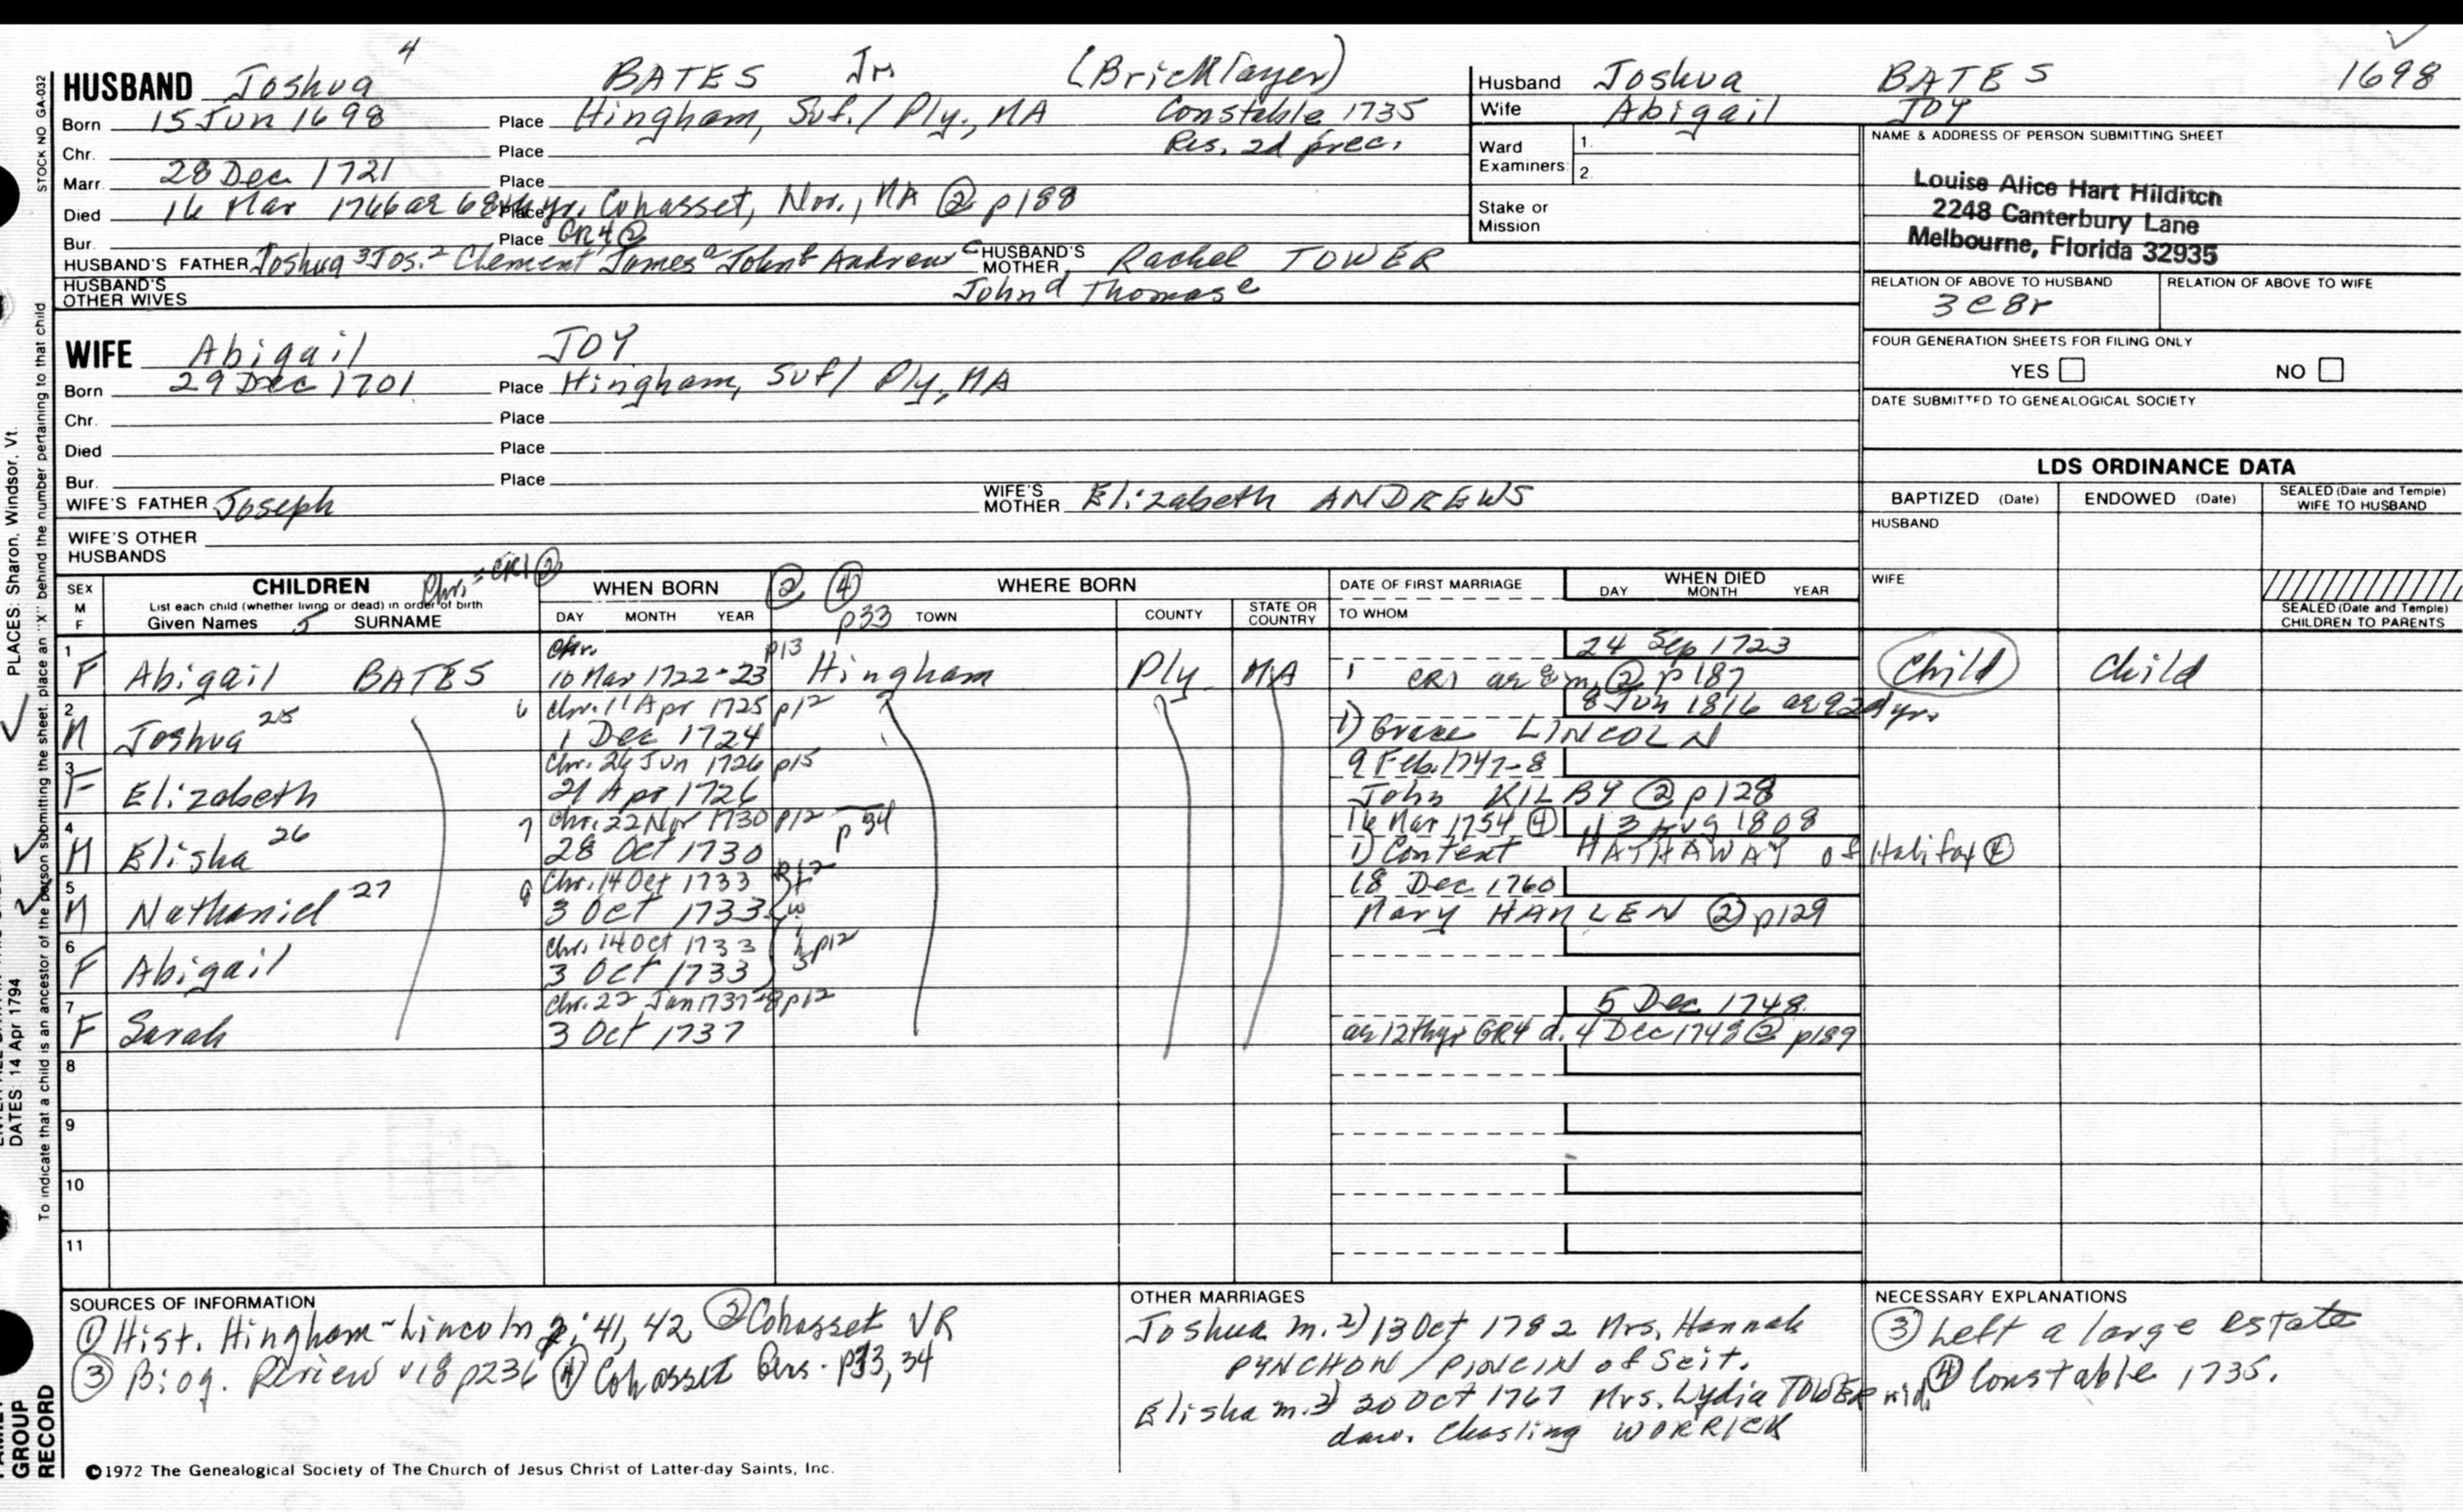 HUSBAND Joshua 4 BATES Jr (Bricklayer)
Born 15 Jun 1698 Place Hingham, Suf./Ply., MA Constable 1735
Chr. Place Res. 2d prec.
Marr. 28 Dec. 1721 Place
Died 16 Mar 1766 ae 68th yr. Place Cohasset, Nor., MA ② p188
Bur. Place GR4 ②
HUSBAND'S FATHER Joshua 3 Jos. 2 Clement 1 James a John b Andrew c HUSBAND'S MOTHER Rachel TOWER
HUSBAND'S OTHER WIVES John d Thomas e
Husband Joshua BATES 1698
Wife Abigail JOY
Ward Examiners: 1.
2.
Stake or Mission
NAME & ADDRESS OF PERSON SUBMITTING SHEET
Louise Alice Hart Hilditch
2248 Canterbury Lane
Melbourne, Florida 32935
RELATION OF ABOVE TO HUSBAND RELATION OF ABOVE TO WIFE
3c8r
FOUR GENERATION SHEETS FOR FILING ONLY
YES NO
DATE SUBMITTED TO GENEALOGICAL SOCIETY
WIFE Abigail JOY
Born 29 Dec 1701 Place Hingham, Suf/Ply, MA
Chr. Place
Died Place
Bur. Place
WIFE'S FATHER Joseph WIFE'S MOTHER Elizabeth ANDREWS
WIFE'S OTHER HUSBANDS
LDS ORDINANCE DATA
BAPTIZED (Date) ENDOWED (Date) SEALED (Date and Temple) WIFE TO HUSBAND
HUSBAND
WIFE
SEALED (Date and Temple) CHILDREN TO PARENTS
SEX M F CHILDREN Chr. = CR1 ② WHEN BORN ② ④ WHERE BORN DATE OF FIRST MARRIAGE WHEN DIED
List each child (whether living or dead) in order of birth DAY MONTH YEAR
Given Names 5 SURNAME DAY MONTH YEAR p33 TOWN COUNTY STATE OR COUNTRY TO WHOM
1 Chr. p13 24 Sep 1723
F Abigail BATES 10 Mar 1722-23 Hingham Ply MA CR1 ae 8m. ② p187 Child Child
2 6 Chr. 11 Apr 1725 p12 8 Jun 1816 ae 92d yr.
M Joshua 25 1 Dec 1724 1) Grace LINCOLN
3 Chr. 26 Jun 1726 p15 9 Feb. 1747-8
F Elizabeth 21 Apr 1726 John KILBY ② p128
4 7 Chr. 22 Nov 1730 p12 p34 16 Mar 1754 ④ 13 Aug 1808
M Elisha 26 28 Oct 1730 1) Content HATHAWAY of Halifax ④
5 8 Chr. 14 Oct 1733 p12 18 Dec. 1760
M Nathaniel 27 3 Oct 1733 Mary HANLEN ② p129
6 Chr. 14 Oct 1733 p12
F Abigail 3 Oct 1733
7 Chr. 22 Jan 1737-8 p12 5 Dec. 1748
F Sarah 3 Oct 1737 ae 12th yr GR4 d. 4 Dec 1748 ② p189
8
9
10
11
SOURCES OF INFORMATION
① Hist. Hingham - Lincoln 2:41, 42 ② Cohasset VR
③ Biog. Review v18 p236 ④ Cohasset Gens. p33, 34
OTHER MARRIAGES
Joshua m. 2) 13 Oct 1782 Mrs. Hannah
PYNCHON / of Scit.
Elisha m. 2) 20 Oct 1767 Mrs. Lydia TOWER wid.
dau. Chasling WORRICK
NECESSARY EXPLANATIONS
③ Left a large estate
④ Constable 1735.
©1972 The Genealogical Society of The Church of Jesus Christ of Latter-day Saints, Inc.
STOCK NO GA-032
To indicate that a child is an ancestor of the person submitting the sheet, place an "X" behind the number pertaining to that child
PLACES: Sharon, Windsor, Vt.
DATES: 14 Apr 1794
GROUP
RECORD